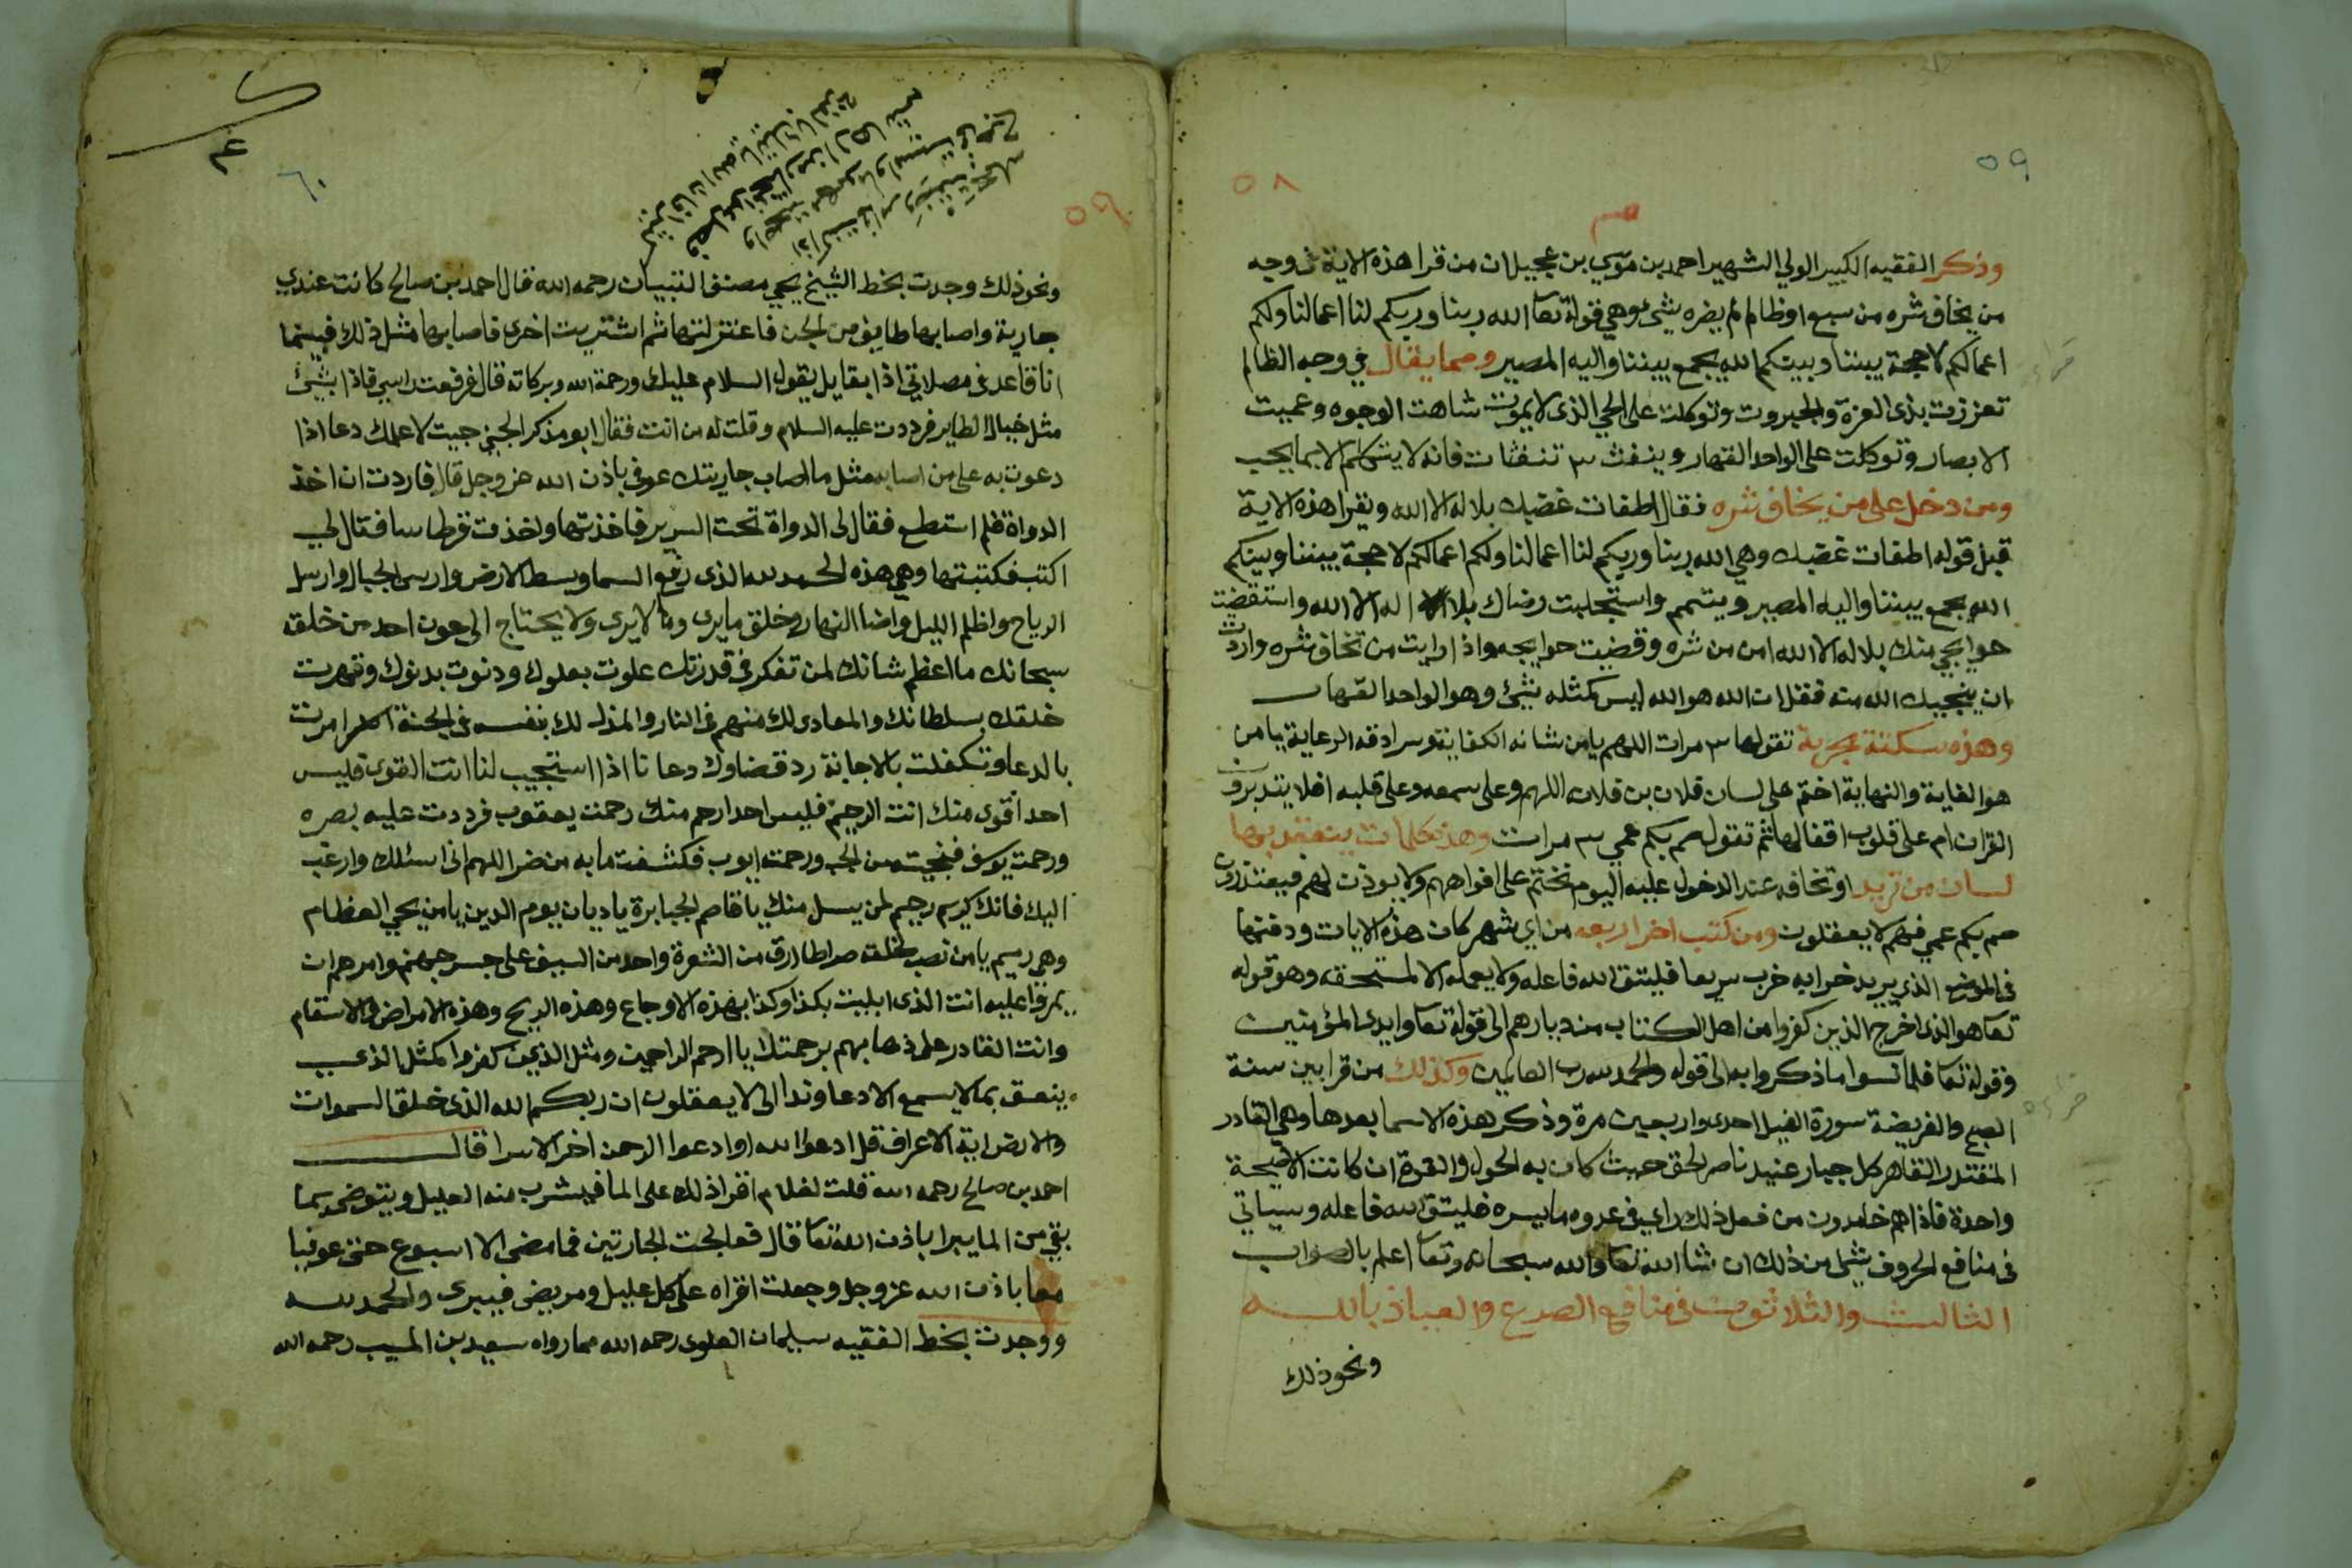 ٥٩
٥٨
وذكر الفقيه الكبير الولي الشهير احمد بن موسي بن عجيل ان من قرا هذه الاية في وجه
من يخاف شره من سبع او ظالم لم يضره شئ وهي قوله تعا الله ربنا وربكم لنا اعمالنا ولكم
اعمالكم لا حجة بيننا وبينكم الله يجمع بيننا واليه المصير ومما يقال في وجه الظالم
تعززت بذى العزة والجبروت وتوكلت على الحي الذى لا يموت شاهت الوجوه وعميت
الابصار وتوكلت على الواحد القهار وينفث ٣ تنفثات فانه لا يتكلم الا بما يحب
ومن دخل على من يخاف شره فقال اطفات غضبك بلا اله الا الله ويقرا هذه الاية
قبل قوله اطفات غضبك وهي الله ربنا وربكم لنا اعمالنا ولكم اعمالكم لا حجة بيننا وبينكم
الله يجمع بيننا واليه المصير ويتمم واستجلبت رضاك بلا اله الا الله واستقضيت
حوايجي منك بلا اله الا الله امن من شره وقضيت حوايجه واذا رايت من تخاف شره واردت
ان ينجيك الله منه فقل ان الله هو الله ليس كمثله شئ وهو الواحد القهار
وهذه سكتة مجربة تقولها ٣ مرات اللهم يا من شانه الكفاية وسرادقه الرعاية يا من
هو الغاية والنهاية اختم على لسان فلان بن فلان اللهم وعلى سمعه وعلى قلبه افلا يتدبرون
القران ام على قلوب اقفالها ثم تقول صم بكم عمي ٣ مرات وهذه كلمات ينعقد بها
لسان من تريد او تخافه عند الدخول عليه اليوم نختم على افواههم ولا يوذن لهم فيعتذرون
صم بكم عمي فهم لا يعقلون ومن كتب اخر اربعه من اي شهر كان هذه الايات ودفنها
في الموضع الذي يريد خرابه خرب سريعا فليتق الله فاعله ولا يعمله الا لمستحقه وهو قوله
تعا هو الذى اخرج الذين كفروا من اهل الكتاب من ديارهم الى قوله تعا وايدى المؤمنين
وقوله تعا فلما نسوا ما ذكروا به الى قوله والحمد لله رب العالمين وكذلك من قرا بين سنة
الصبح والفريضة سورة الفيل احدى واربعين مرة وذكر هذه الاسما بعدها وهي القادر
المقتدر القاهر كل جبار عنيد ناصر الحق حيث كان به الحول والقوة ان كانت الا صيحة
واحدة فاذا هم خامدون من فعل ذلك راي في عدوه ما يسره فليتق الله فاعله وسياتي
في منافع الحروف شئ من ذلك ان شا الله تعا والله سبحانه وتعا اعلم بالصواب
الثالث والثلاثون في منافع الصرع والعياذ بالله
ونحو ذلك
٦٠
٥٩
ونحو ذلك وجدت بخط الشيخ يحي مصنف التبيان رحمه الله قال احمد بن صالح كانت عندي
جارية واصابها طايف من الجن فاعتزلتها ثم اشتريت اخرى فاصابها مثل ذلك فبينما
انا قاعد في مصلاتي اذا بقايل يقول السلام عليك ورحمة الله وبركاته قال فرفعت راسي فاذا بشئ
مثل خيال الطاير فرددت عليه السلام وقلت له من انت فقال ابو مذكر الجني جيت لاعلمك دعا اذا
دعوت به على من اصابه مثل ما اصاب جاريتك عوفي باذن الله عز وجل قال فاردت ان اخذ
الدواة فلم استطع فقال لى الدواة تحت السرير فاخذتها واخذت قرطاسا فقال لي
اكتب فكتبتها وهي هذه الحمد لله الذى رفع السما وبسط الارض وارسى الجبال وارسل
الرياح واظلم الليل واضا النهار وخلق ما يرى وما لا يرى ولا يحتاج الى عون احد من خلقه
سبحانك ما اعظم شانك لمن تفكر في قدرتك علوت بعلوك ودنوت بدنوك وقهرت
خلقك بسلطانك والمعادى لك منهم في النار والمذل لك نفسه في الجنة امرت
بالدعا وتكفلت بالاجابة رد قضاوك دعانا اذا استجيب لنا انت القوى فليس
احد أقوى منك انت الرحيم فليس احد ارحم منك رحمت يعقوب فرددت عليه بصره
ورحمت يوسف فنجيته من الجب ورحمت ايوب فكشفت ما به من ضر اللهم اني اسئلك وارغب
اليك فانك كريم رحيم لمن يسل منك يا قاصم الجبابرة يا ديان يوم الدين يا من يحي العظام
وهي رميم يا من نصب لخلقه صراطا ارق من الشعرة واحد من السيف على جسر جهنم وامرهم ان
يمروا عليه انت الذى ابليت بكذا وكذا بهذه الاوجاع وهذه الريح وهذه الامراض والاسقام
وانت القادر على ذهابهم برحمتك يا ارحم الراحمين ومثل الذين كفروا كمثل الذي
ينعق بما لا يسمع الا دعا وندا الى لا يعقلون ان ربكم الله الذى خلق السموات
والارض اية الاعراف قل ادعوا الله او ادعوا الرحمن اخر الاسرا قال
احمد بن صالح رحمه الله قلت لغلام اقرا ذلك على الما فيشرب منه العليل ويتوضى بما
بقي من الما يبرا باذن الله تعا قال فعالجت الجاريتين فما مضى الا اسبوع حتى عوفيا
معا باذن الله عز وجل وجعلت اقراه على كل عليل ومريض فيبرى والحمد لله
ووجدت بخط الفقيه سليمان العلوى رحمه الله مما رواه سعيد بن المسيب رحمه الله